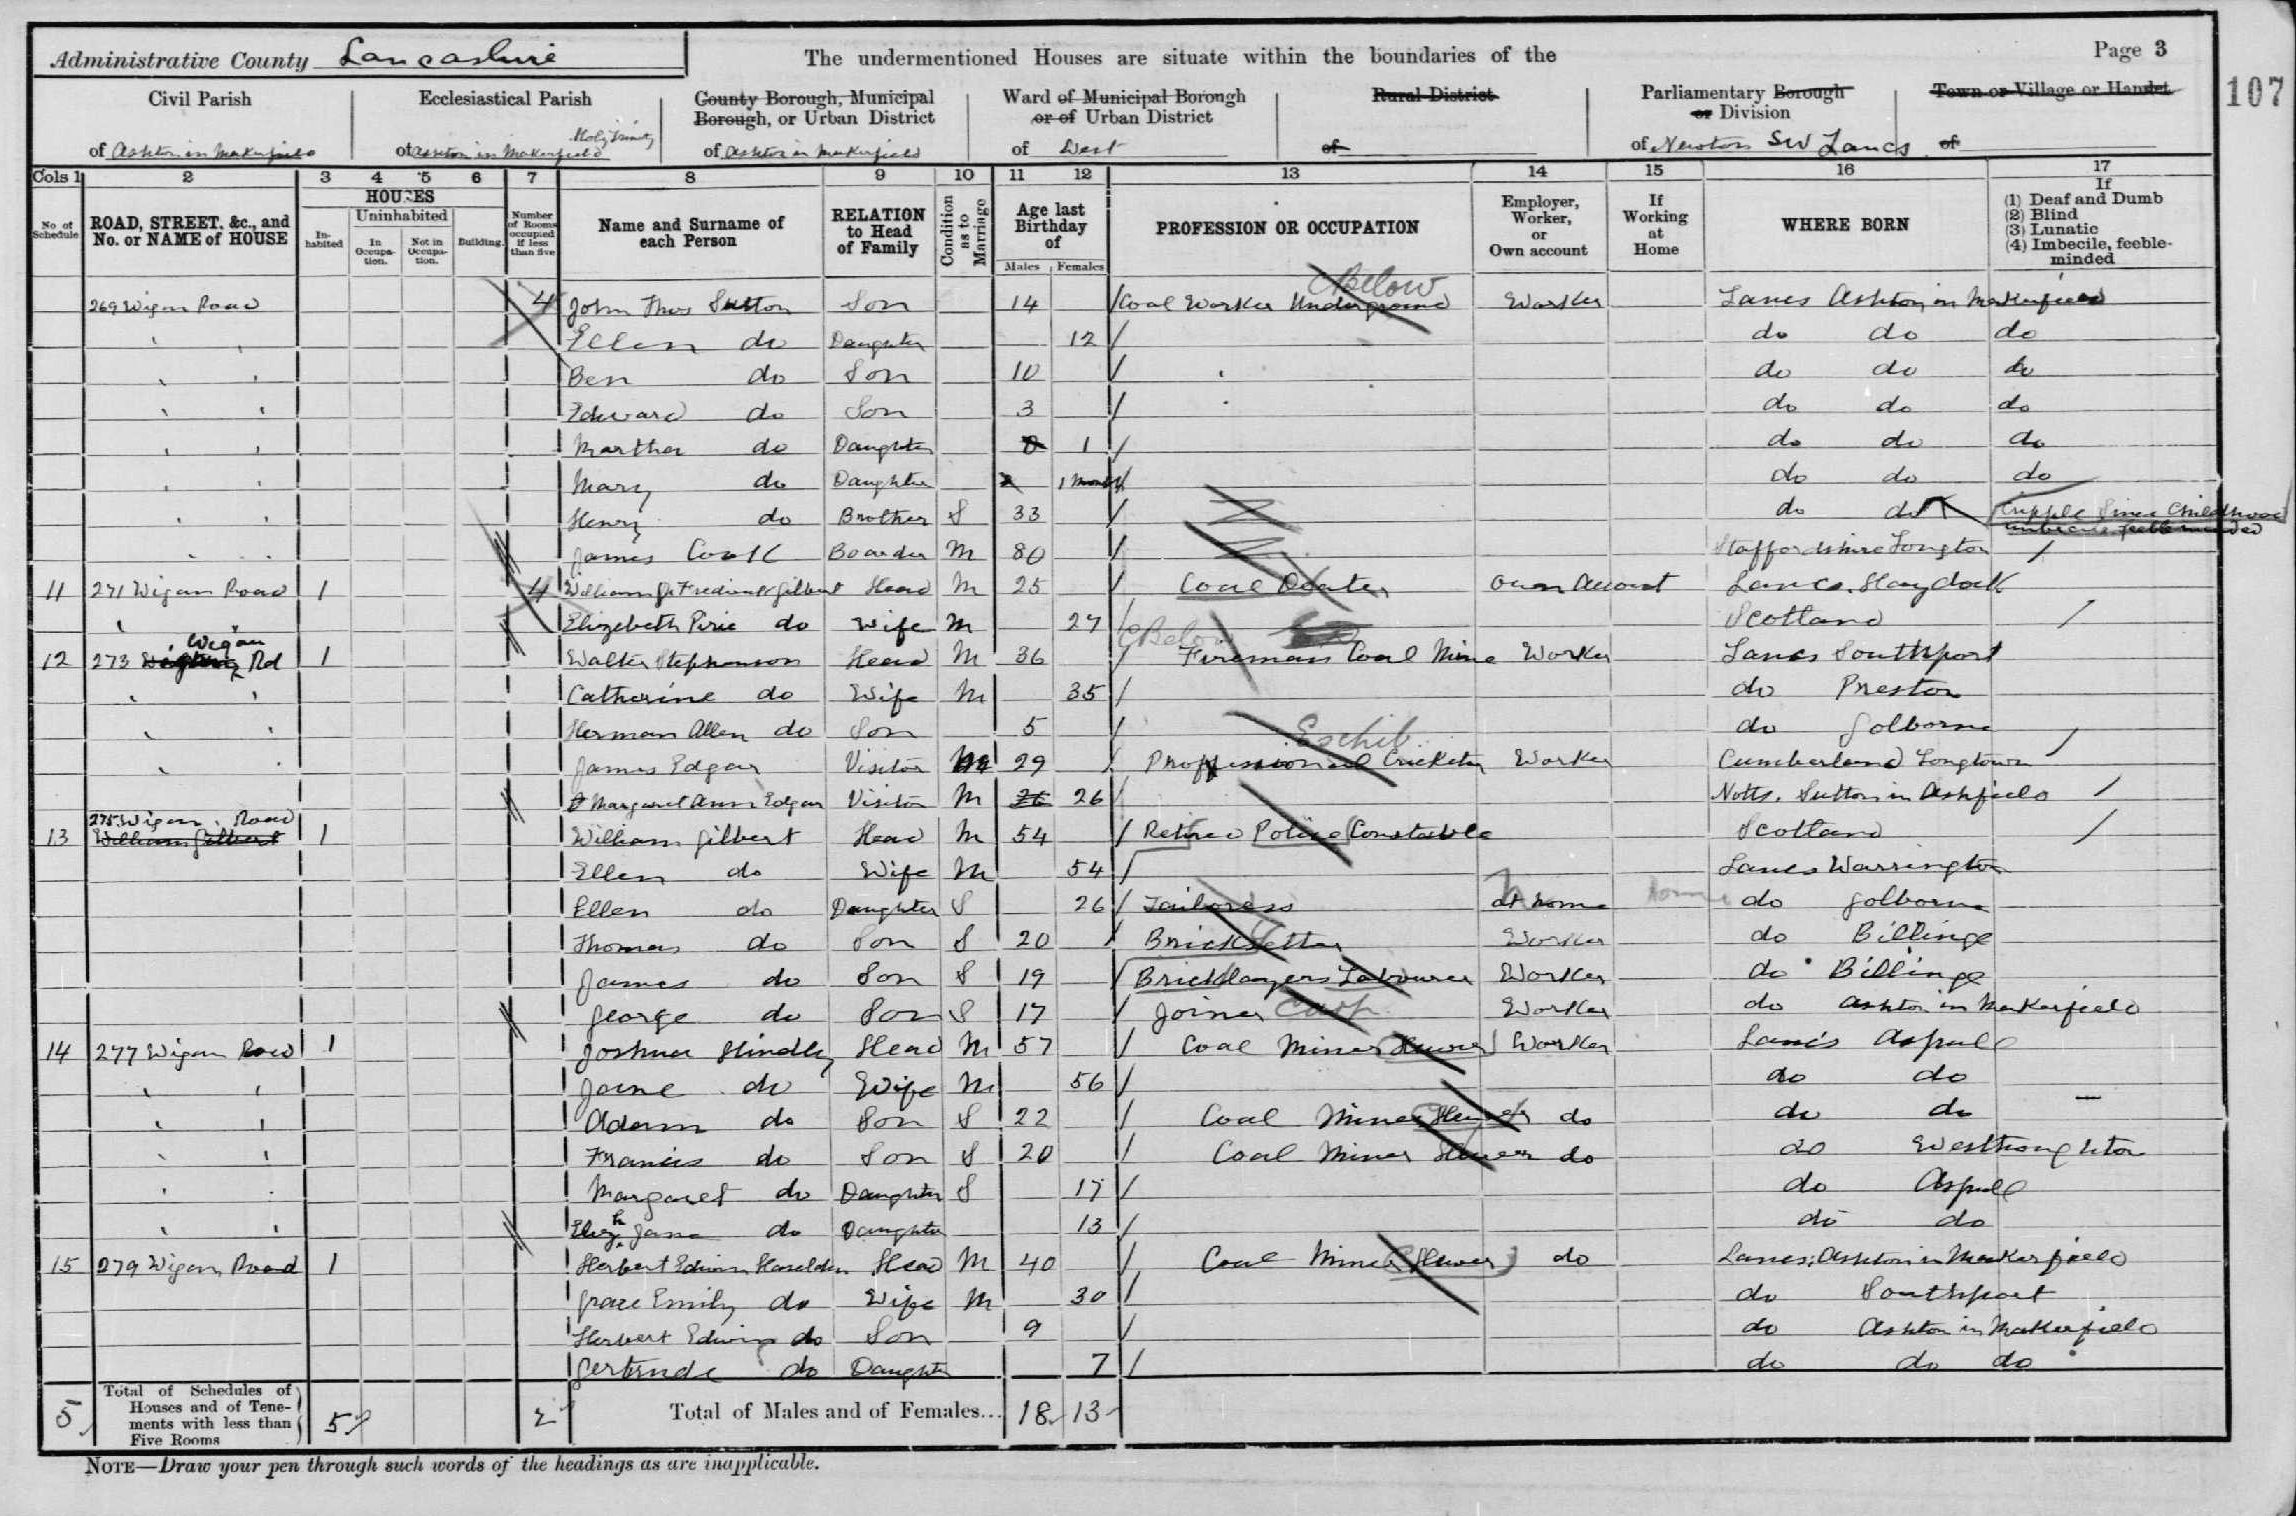 Administrative County Lancashire
The undermentioned Houses are situate within the boundaries of the
Page 3
107
Civil Parish
of Ashton in Makerfield
Ecclesiastical Parish
of Ashton in Makerfield Holy Trinity
County Borough, Municipal
Borough, or Urban District
of Ashton in Makerfield
Ward of Municipal Borough
or of Urban District
of West
Rural District
of
Parliamentary Borough
or Division
of Newton SW Lancs
Town or Village or Hamlet
of
Cols 1 2 3 4 5 6 7 8 9 10 11 12 13 14 15 16 17
No of Schedule
ROAD, STREET, &c., and No. or NAME of HOUSE
HOUSES
Inhabited
Uninhabited
In Occupation.
Not in Occupation.
Building.
Number of Rooms occupied if less than five
Name and Surname of each Person
RELATION to Head of Family
Condition as to Marriage
Age last Birthday of
Males Females
PROFESSION OR OCCUPATION
Employer, Worker, or Own account
If Working at Home
WHERE BORN
If
(1) Deaf and Dumb
(2) Blind
(3) Lunatic
(4) Imbecile, feeble-minded
269 Wigan Road 4 John Thos Sutton Son 14 Coal Worker Underground Below Worker Lancs Ashton in Makerfield
Ellen do Daughter 12 do do do
Ben do Son 10 do do do
Edward do Son 3 do do do
Martha do Daughter 1 do do do
Mary do Daughter 1 month do do do
Henry do Brother S 33 do do Cripple Since Childhood
James Cook Boarder M 80 Staffordshire Longton
11 271 Wigan Road 1 4 William Fredrick Gilbert Head M 25 Coal Dealer Own Account Lancs. Haydock
Elizabeth Pirie do Wife M 27 Scotland
12 273 Wigan Rd 1 Walter Stephenson Head M 36 Below Fireman Coal Mine Worker Lancs Southport
Catherine do Wife M 35 do Preston
Herman Allen do Son 5 do Golborne
James Edgar Visitor M 29 Proffessional Cricketer Exhib. Worker Cumberland Longtown
Margaret Ann Edgar Visitor M 26 26 Notts. Sutton in Ashfield
275 Wigan Road
13 William Gilbert 1 William Gilbert Head M 54 Retired Police Constable Scotland
Ellen do Wife M 54 Lancs Warrington
Ellen do Daughter S 26 Tailoress At home home do Golborne
Thomas do Son S 20 Bricksetter Worker do Billinge
James do Son S 19 Bricklayers Labourer Worker do Billinge
George do Son S 17 Joiner Carp. Worker do Ashton in Makerfield
14 277 Wigan Road 1 Joshua Hindley Head M 57 Coal Miner Hewer Worker Lancs Aspull
Jane do Wife M 56 do do
Adam do Son S 22 Coal Miner Hewer do do do
Francis do Son S 20 Coal Miner Hewer do do Westhoughton
Margaret do Daughter S 17 do Aspull
Elizth Jane do Daughter 13 do do
15 279 Wigan Road 1 Herbert Edwin Haselden Head M 40 Coal Miner Hewer do Lancs. Ashton in Makerfield
Grace Emily do Wife M 30 do Southport
Herbert Edwin do Son 9 do Ashton in Makerfield
Gertrude do Daughter 7 do do do
5 Total of Schedules of Houses and of Tenements with less than Five Rooms 5 2 Total of Males and of Females... 18 13
NOTE—Draw your pen through such words of the headings as are inapplicable.